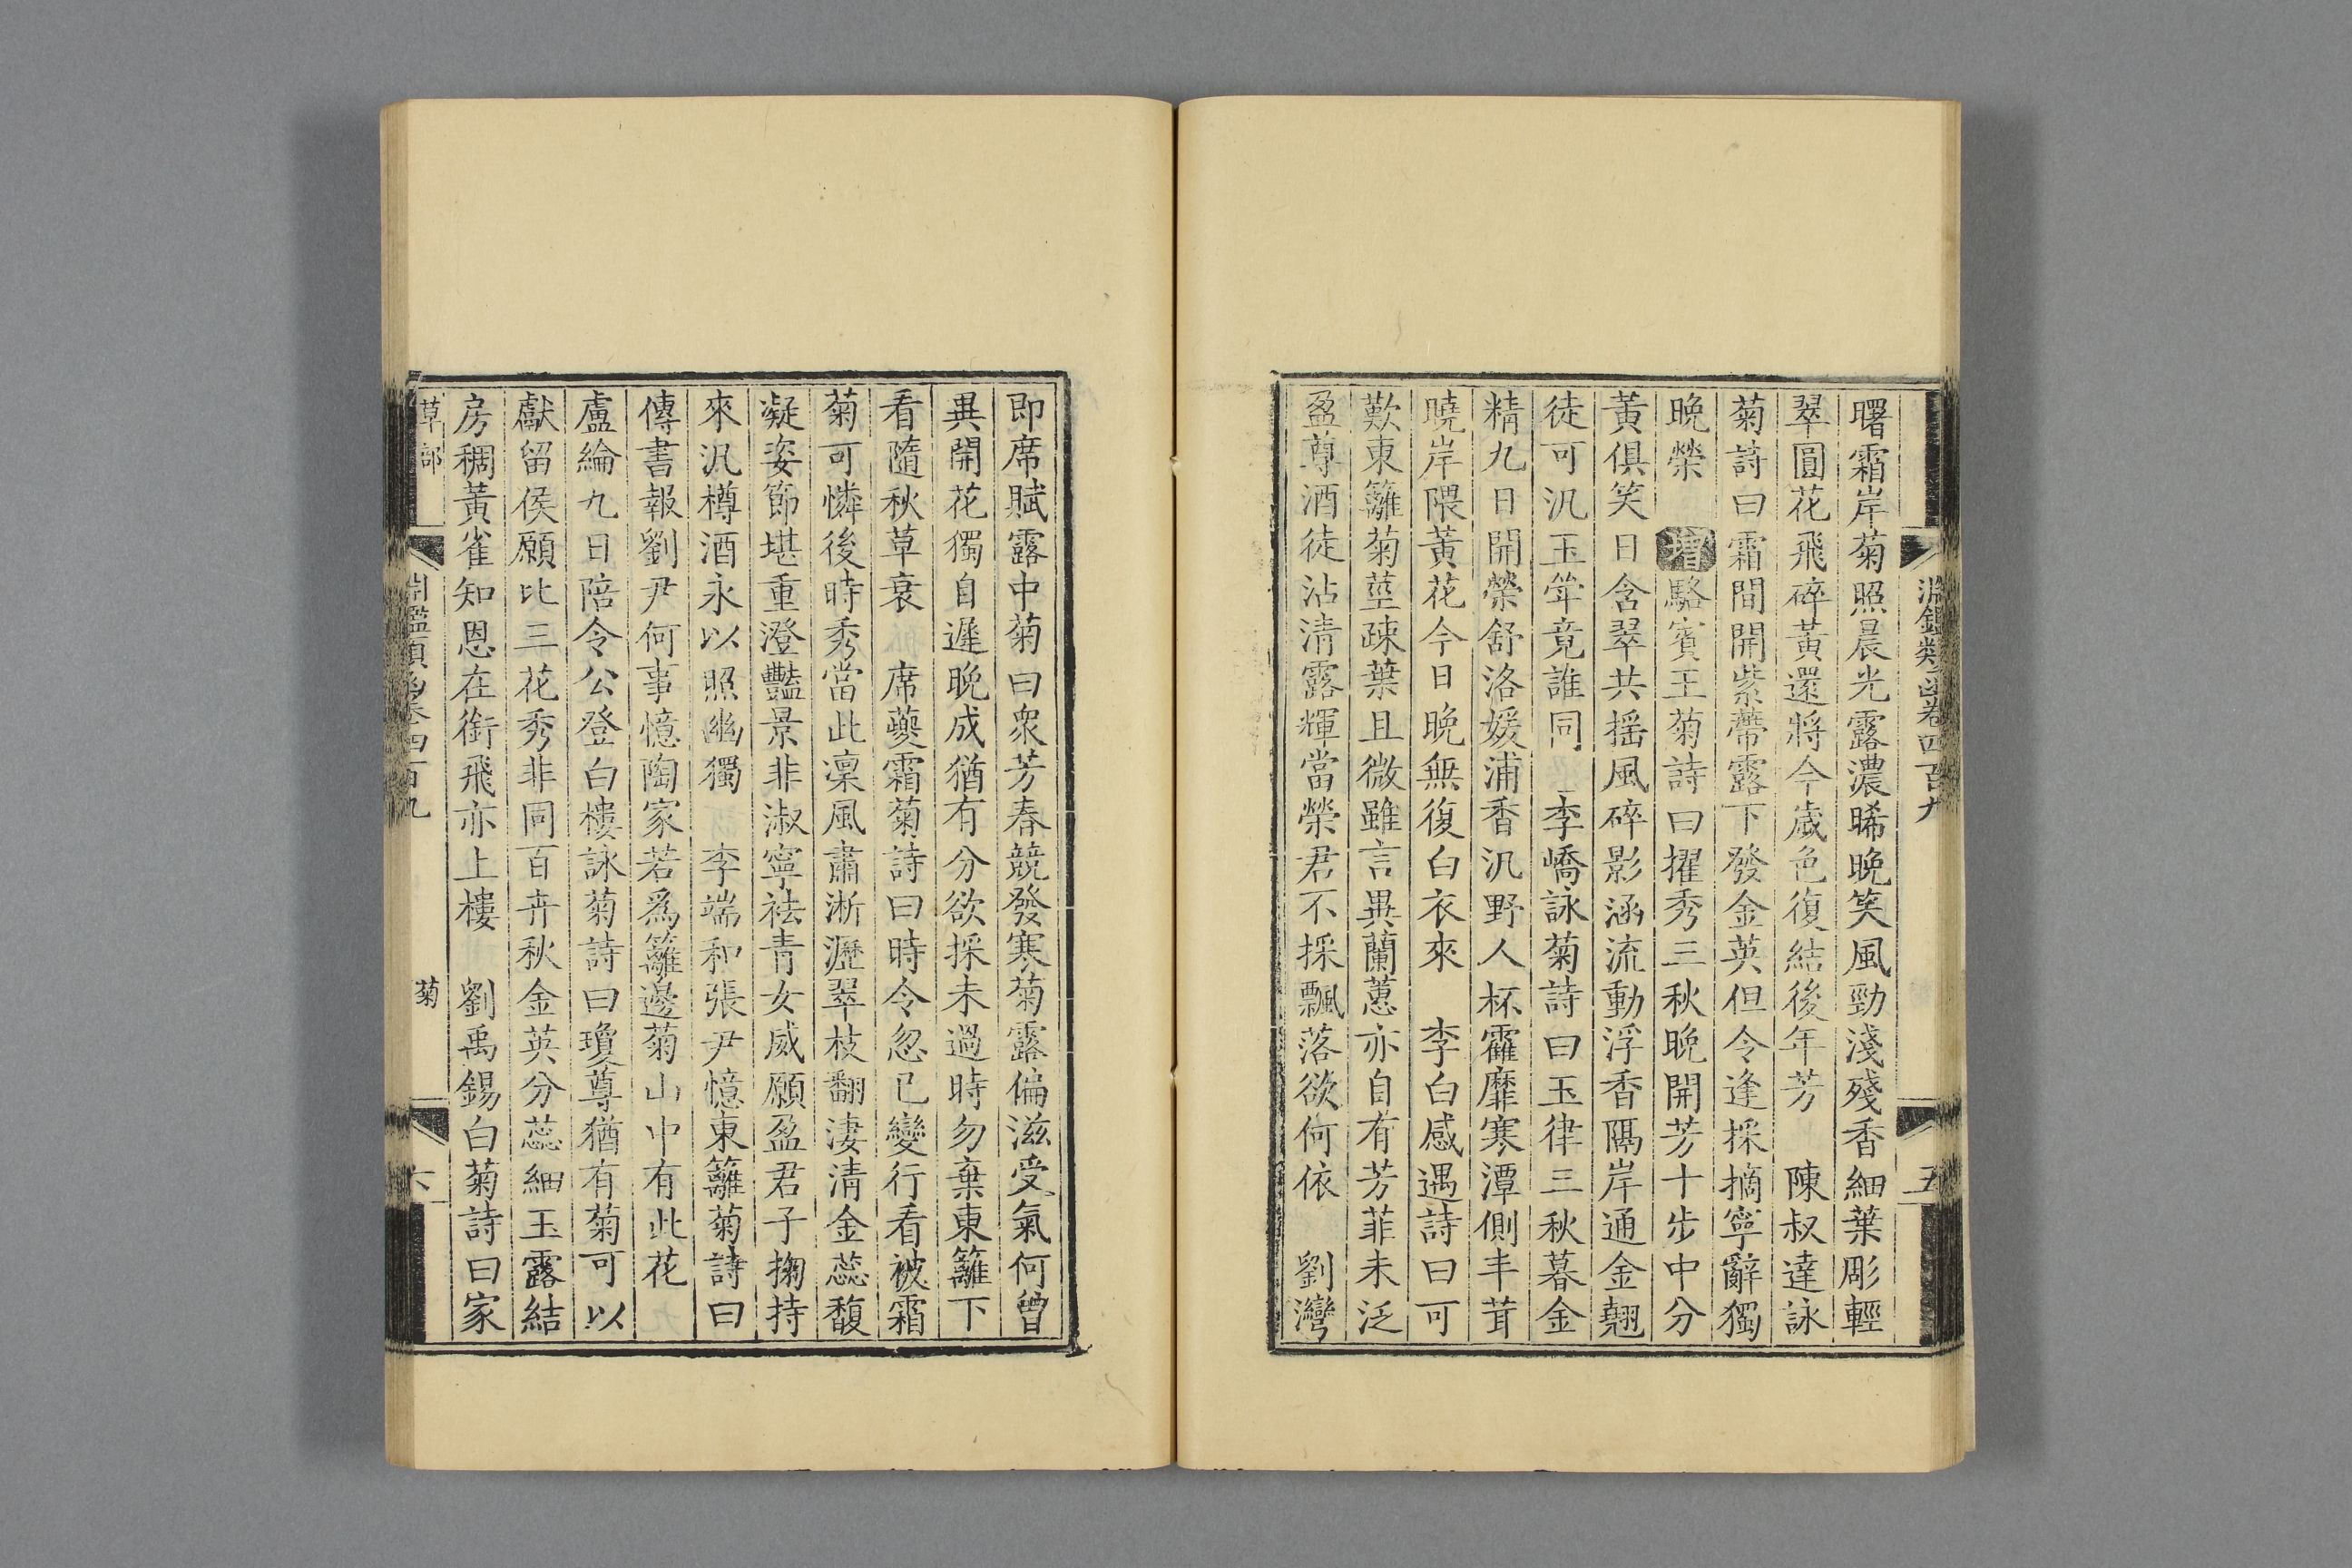 淵鑑類函卷四百九
五
曙霜岸菊照晨光露濃晞晚笑風勁淺殘香細葉彫輕
翠圓花飛碎黃還將今歲色復結後年芳 陳叔達詠
菊詩曰霜間開紫蔕露下發金英但令逢採摘寧辭獨
晚榮 增駱賓王菊詩曰擢秀三秋晚開芳十步中分
黃俱笑日含翠共搖風碎影涵流動浮香隔岸通金翹
徒可汎玉斝竟誰同 李嶠詠菊詩曰玉律三秋暮金
精九日開榮舒洛媛浦香汎野人杯靃靡寒潭側丰茸
曉岸隈黃花今日晚無復白衣來 李白感遇詩曰可
歎東籬菊莖疎葉且微雖言異蘭蕙亦自有芳菲未泛
盈尊酒徒沾清露輝當榮君不採飄落欲何依 劉灣
即席賦露中菊曰衆芳春競發寒菊露偏滋受氣何曾
異開花獨自遲晚成猶有分欲採未過時勿棄東籬下
看隨秋草衰 席夔霜菊詩曰時令忽已變行看被霜
菊可憐後時秀當此凜風肅淅瀝翠枝翻淒清金蕊馥
凝姿節堪重澄豔景非淑寧祛青女威願盈君子掬持
來汎樽酒永以照幽獨 李端和張尹憶東籬菊詩曰
傳書報劉尹何事憶陶家若爲籬邊菊山中有此花
盧綸九日陪令公登白樓詠菊詩曰瓊尊猶有菊可以
獻留侯願比三花秀非同百卉秋金英分蕊細玉露結
房稠黃雀知恩在銜飛亦上樓 劉禹錫白菊詩曰家
草部
淵鑑類函卷四百九
菊
六